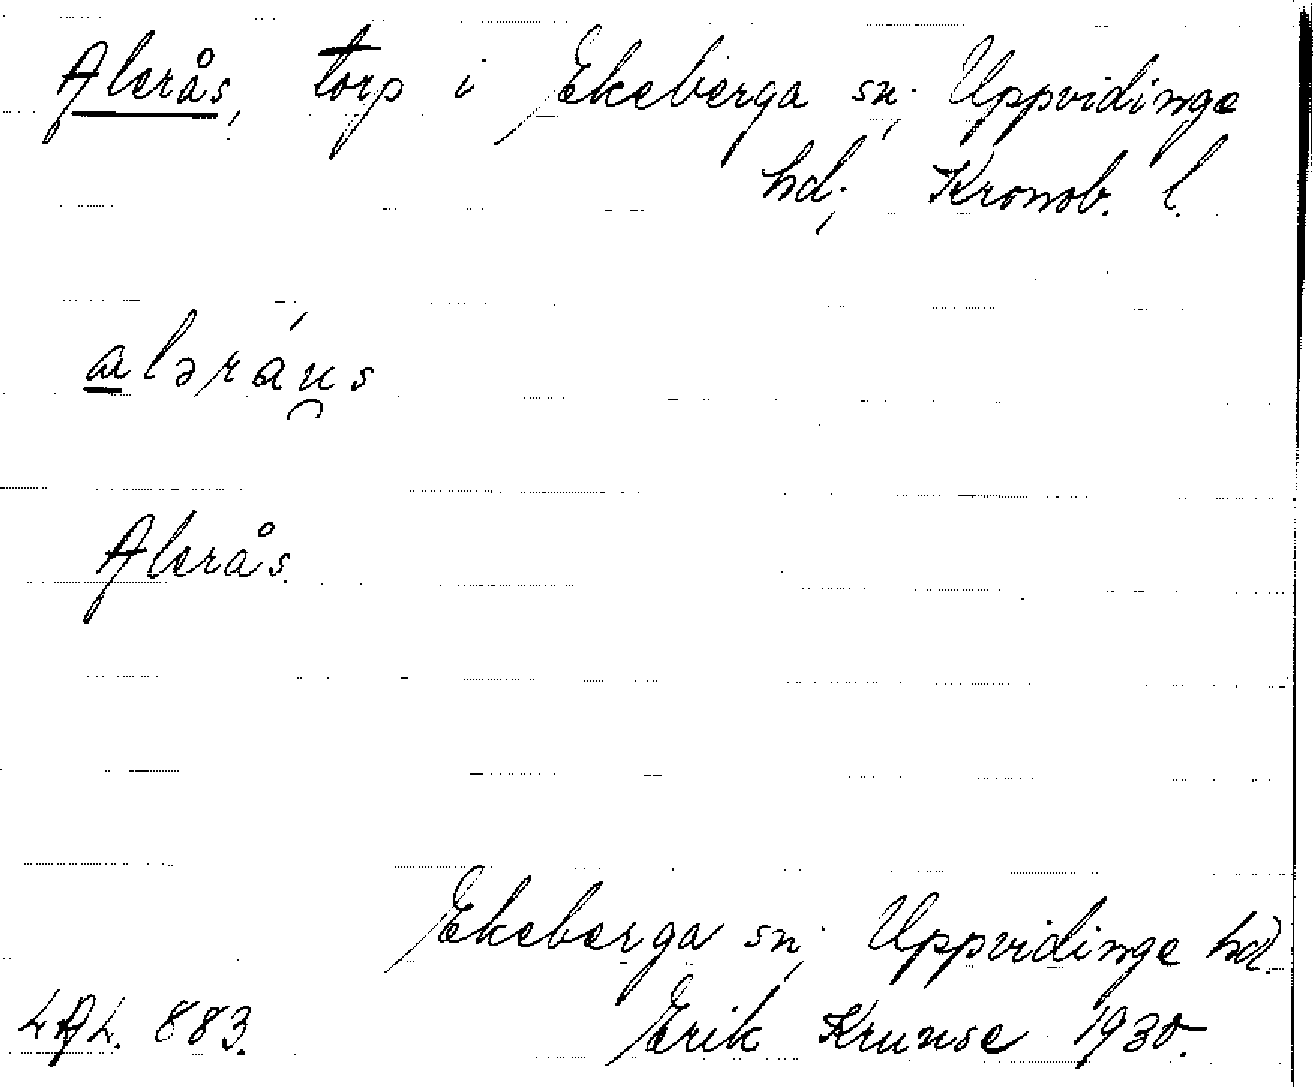 Alerås, torp i Ekeberga sn, Uppvidinge
hd, Kronob. l.
aləráu̯s
Alerås.
Ekeberga sn, Uppvidinge hd.
LAL. 883. Erik Krunse 1930.